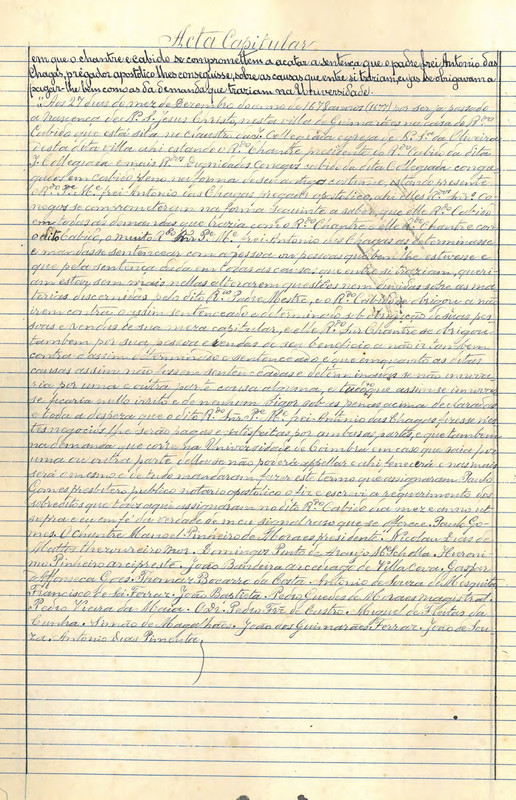 Acta Capitular
em que o chantre e cabido se compromettem a acatar a sentença que o padre frei Antonio das
Chagas, prégador apostolico lhes conseguisse, sobre as causas que entre si traziam, cujas se obrigavam a
pagar-lhe bem como as da demanda que traziam na Universidade.
"Aos 27 dias do mez de Dezembro do anno de 1678 annos (1677) por ser já passado
o nascença de N. S. Jesus Christo, nesta villa de Guimarães na casa do R.do
Cabido que está sita no claustro da I. Collegiada egreja de N. Sr.ª da Oliveira
desta dita villa ahi estando o R.do Chantre presidente do R.do Cabido da dita
I. Collegiada e mais R.dos Dignidades Conegos cabido da dita Collegiada congre
gados em cabido pleno na forma de seu antigo costume, estando presente
o R.do P.e M.e frei Antonio das Chagas prégador apostolico, ahi elles R.dos Snr.s Co-
negos se comprometeram na forma seguinte a saber que elle R.do Cabido
em todas as demandas que trazia com o R.do Chantre e elle R.do Chantre com
o dito Cabido, o muito R.do Snr. P.e M.e frei Antonio das Chagas as determinasse
e mandasse sentencear com a pessoa ou pessoas que bem lhe estivesse e
que pela sentença dada em todas as causas que entre si traziam, queri-
am estar, sem mais nellas alterarem questões nem duvidas sobre as ma-
terias discernidas pelo dito R.do Padre Mestre, e o R.do Cabido se obrigou a não
irem contra o assim sentenceado e determinado sob obrigação de suas pes-
soas e rendas de sua meza capitular, e elle R.do Snr. Chantre se obrigou
tambem por sua pessoa e rendas de seu beneficio a não ir tambem
contra o assim determinado e sentenceado e que emquanto as ditas
causas assim não fossem sentenceadas e determinadas se não innova-
ria por uma e outra parte causa alguma, e tudo o que assim se innovas-
se ficaria nullo irrito e de nenhum vigor sob as penas acima declaradas
e toda a despeza que o dito R.do Snr. P.e M.e frei Antonio das Chagas fizesse nes-
tes negocios lhe serão pagas e satisfeitas por ambas as partes, e que tambem
na demanda que corre na Universidade de Coimbra em caso que saia por
uma ou outra parte della se não poderá appellar e ahi fenecerá e nos mais
será o mesmo e de tudo mandaram fazer este termo que assignaram Paulo
Gomes presbitero publico notario apostolico o fiz e escrevi a requerimento dos
sobreditos que todos aqui assignaram no dito R.do Cabido dia mez e anno ut
supra e eu em fé da verdade de meu signal raso que se offerece. Paulo Go-
mes. O Chantre Manoel Pinheiro de Moraes presidente. Nicolau Dias de
Mattos thezoureiro mor. Domingos Pinto de Araujo M.e Eschola. Hieroni-
mo Pinheiro arcipreste. João Bandeira arcediago de Villa Cova. Gaspar
d'Affonseca Goes. Thomaz Bocarro da Costa. Antonio de Souza de Mesquita
Francisco de Sá Ferraz. João Baptista. Pedro Guedes de Moraes magistral.
Pedro Vieira da Maia. Pedro de Castro. Miguel de Freitas da
Cunha. Simão de Magalhães. João dos Guimarães Ferraz. João de Sou-
za. Antonio Dias Pimenta,